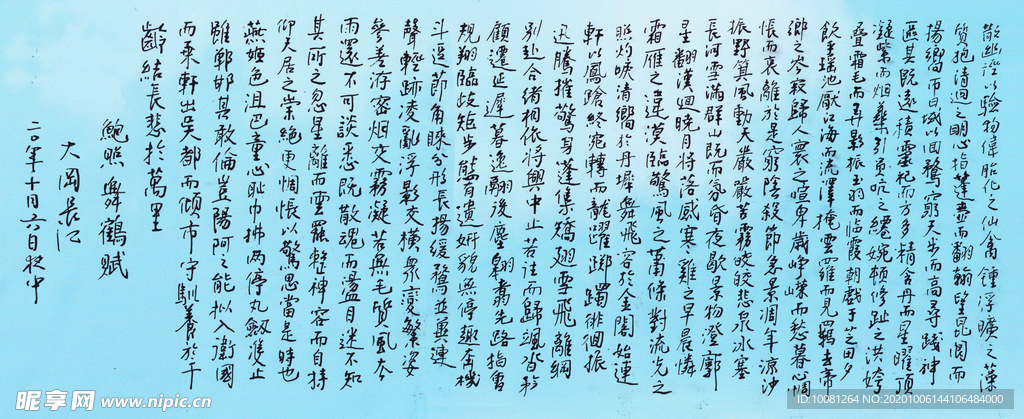 散幽經以驗物偉胎化之仙禽鍾浮曠之藻
質抱清迥之明心指蓬壺而翻翰望昆閬而
揚嚮帀日域以迴騖窮天步而高尋踐神
區其既遠積靈祀而方多精含丹而星曜頂
凝紫而烟華引員吭之纖婉頓修趾之洪姱
疊霜毛而弄影振玉羽而臨霞朝戲于芝田夕
飲乎瑤池厭江海而流澤掩雲羅而見羈去帝
鄉之岑寂歸人寰之喧卑歲崢嶸而愁暮心惆
悵而哀離於是窮陰殺節急景凋年涼沙
振野箕風動天嚴嚴苦霧皎皎悲泉冰塞
長河雪滿群山既而氛昏夜歇景物澄廓
星翻漢迴曉月將落感寒雞之早晨憐
霜雁之違漠臨驚風之蕭條對流光之
照灼唳清嚮于丹墀舞飛容於金閣始連
軒以鳳蹌終宛轉而龍躍躑躅徘徊振
迅騰摧驚身蓬集矯翅雪飛離綱
別赴合緒相依將興中止若往而歸颯沓矜
顧遷延遲暮逸翮後塵翱翥先路指會
規翔臨岐矩步態有遺妍貌無停趣奔機
斗逗節角睞分形長揚緩騖並翼連
聲輕跡凌亂浮影交橫眾變繁姿
參差洊密烟交霧凝若無毛質風去
雨還不可談悉既散魂而盪目迷不知
其所之忽星離而雲罷整神容而自持
仰天居之崇絕更惆悵以驚思當是時也
燕姬色沮巴童心耻巾拂兩停丸劍雙止
雖邯鄲其敢倫豈陽阿之能擬入衛國
而乘軒出吳都而傾市守馴養於千
齡結長悲於萬里
鮑照舞鶴賦
大岡長江
二〇年十月六日夜中
昵享网 www.nipic.cn
ID:10081264 NO:20201006144106484000